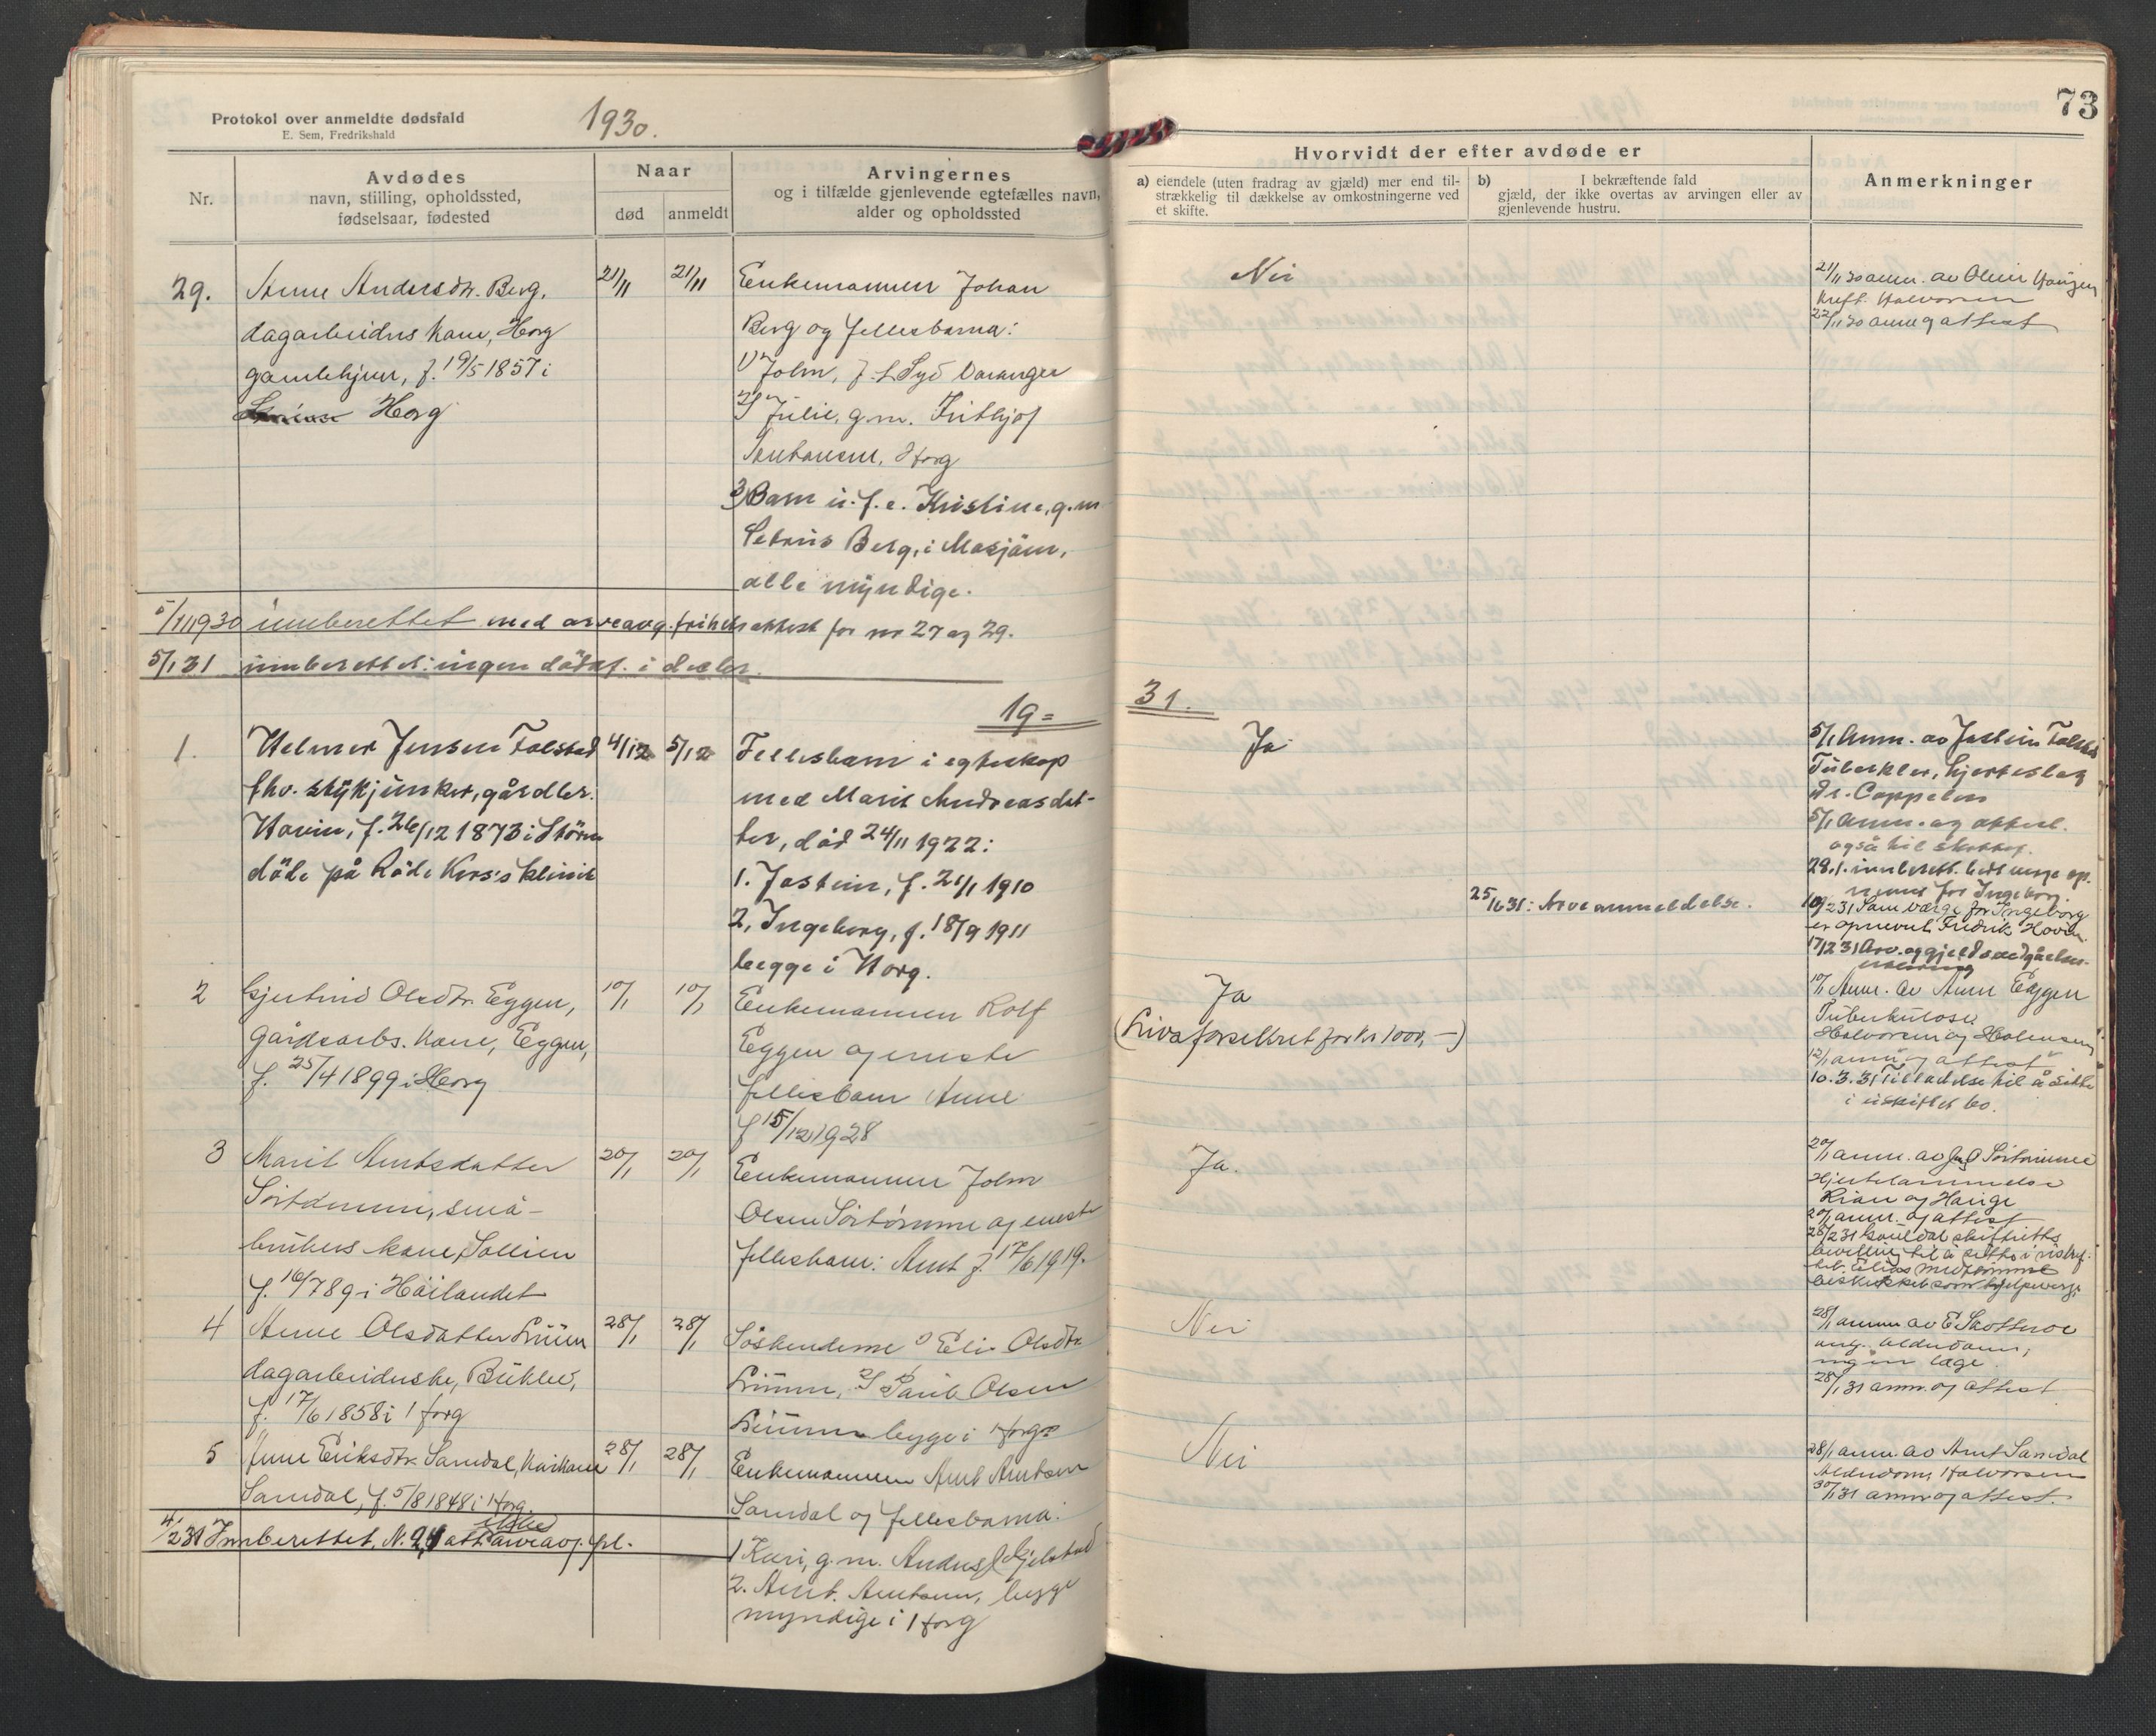 Protokol over anmeldte dødsfald
E. Sem, Fredrikshald
1930.
Nr.
Avdødes
navn, stilling, opholdssted,
fødselsaar, fødested
Naar
død
anmeldt
Arvingernes
og i tilfælde gjenlevende egtefælles navn,
alder og opholdssted
29.
Anne Andersdtr. Berg,
dagarbeiders kone, Horg
gamlehjem, f. 19/5 1857 i
Horg
21/11
21/11
Enkemannen Johan
Berg og fellesbarna:
1) John, f. t. Syd Varanger
2) Julie, g.m. Frithjof
Horg
3) Barn u. f. e. Kristine, g.m
Berg, i Mosjøen,
alle myndige.
5/11 1930 innberettet med arveavg.frihets attest for nr 27 og 29.
5/1 31 innberettet: ingen dödsf. i decbr.
19=
1.
Helmer Jensen Folstad
fhv. stykjunker, gårdbr.
Hovin, f. 26/12 1873 i Stören
döde på Röde Kors's klinik
4/12
5/12
Fellesbarn i egteskap
med Marit Andreasdat-
ter, död 24/11 1922:
1. Jostein, f. 21/1 1910
2, Ingeborg, f. 18/9 1911
begge i Horg.
2
Gjertrud Olsdtr. Eggen,
gårdsarbs. kone, Eggen,
f. 25/4 1899 i Horg
10/1
10/1
Enkemannen Rolf
Eggen og eneste
fellesbarn Anne
f 15/12 1928
3
Marit Arntsdatter
små-
brukers kone, Sollien
f. 16/7 89 i Höilandet
20/1
20/1
Enkemannen John
Olsen Sörtömme og eneste
fellesbarn: Arnt f. 17/6 1919.
4
Anne Olsdatter
dagarbeiderske,
f. 17/6 1858 i Horg
28/1
28/1
Söskenderne 1) Eli Olsdtr.
2) Olsen
begge i Horg
5
Anne Eriksdtr. Samdal, kårkone
Samdal, f. 5/8 1848 i Horg.
28/1
28/1
Enkemannen Arnt Arntsen
Samdal og fellesbarna:
1 Kari, g.m. Anders Gjelstad
2. Arnt Arntsen, begge
myndige i Horg
4/2 31 Innberettet. N. 2, 4 att arveavg. fri.
73
Hvorvidt der efter avdøde er
a) eiendele (uten fradrag av gjæld) mer end til-
strækkelig til dækkelse av omkostningerne ved
et skifte.
b) I bekræftende fald
gjæld, der ikke overtas av arvingen eller av
gjenlevende hustru.
Anmerkninger
Nei
21/11 30 anm. av
Kreft. Halvorsen
22/11 30 anm og attest
31.
Ja
25/6 31: Arveanmeldelse.
5/1 Anm. av Jostein Folstad
Tuberkler, hjerteslag
Dr. Cappelen
5/1 Anm. og attest.
også til skattef.
28.1. innberett. bedt verge op-
nevnt for Ingeborg.
10/2 31 Som værge for Ingeborg
er opnevnt Fredrik Hovin.
17/2 31 Arv. og gjeldsvedgåelses-
erklæring
Ja
(Livsforsikret for kr 1000, —)
10/1 Anm. av Arne Eggen
Tuberkulose
Halvorsen og
12/1 anm og attest
10.3.31 Tilladelse til å sitte
i uskiftet bo.
Ja.
20/1 anm. av
Hjertelammelse
Rian og Hauge
20/1 anm. og attest
Gauldal skifteretts
bevilling til å sitte i uskif-
beskikket som hjelpeverge
Nei
28/1 anm av E Skotterøe
ant. alderdom,
ingen læge.
28/1 31 anm. og attest
Nei
28/1 anm. av Arnt Samdal
Alderdom, Halvorsen
30/1 31 anm og attest.